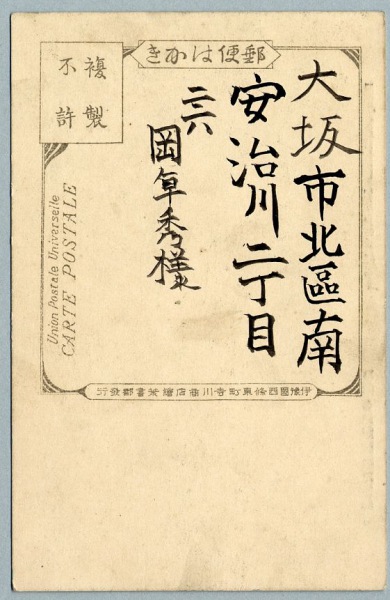 郵便はかき
複製
不許
大坂市北區南
安治川二丁目
二六
岡草秀様
Union Postale Universelle
CARTE POSTALE
伊豫國西條東町寺川商店繪葉書部發行